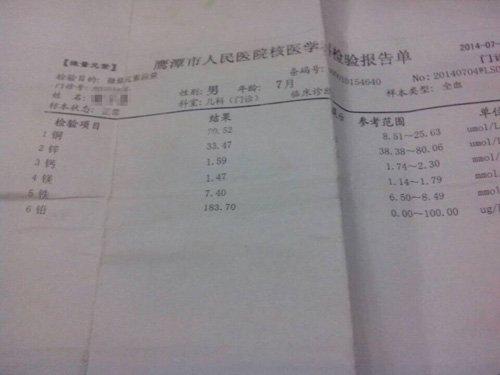 【微量元素】
鹰潭市人民医院核医学 检验报告单
2014-07-
检验目的: 微量元素
条码号: 0010154640
门诊
门诊号:
性别: 男 年龄: 7月
No: 20140704WLS0
姓名:
科室: 儿科(门诊) 临床诊
样本类型: 全血
样本状态: 正常
检验项目 结果 参考范围 单位
1 铜 20.52 8.51~25.63 umol/L
2 锌 33.47 38.38~80.06 umol/
3 钙 1.59 1.74~2.30 mmol/
4 镁 1.47 1.14~1.79 mmol/
5 铁 7.40 6.50~8.49 mmol/
6 铅 183.70 0.00~100.00 ug/